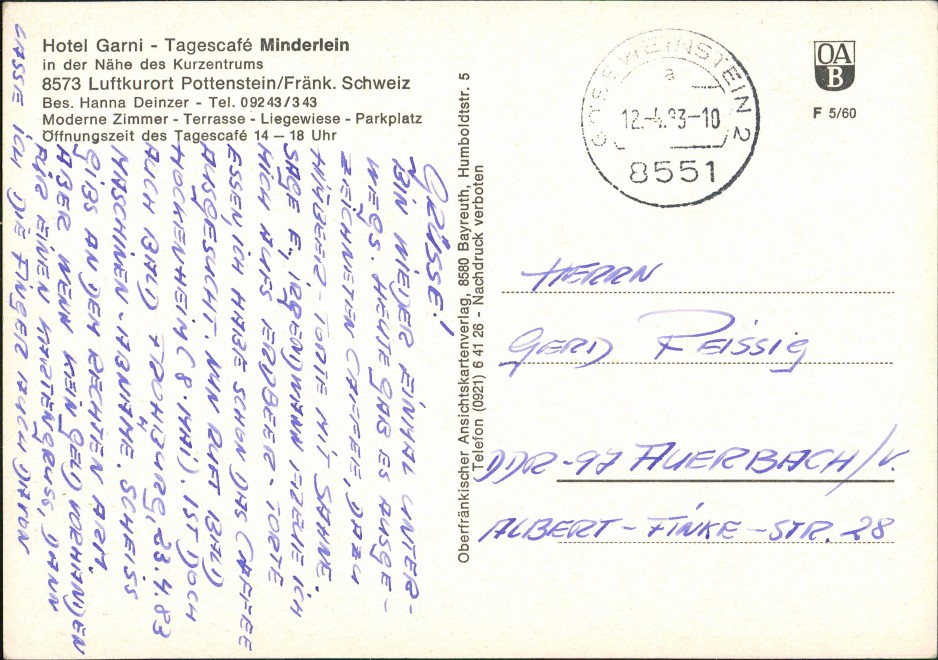 Hotel Garni - Tagescafé Minderlein
in der Nähe des Kurzentrums
8573 Luftkurort Pottenstein/Fränk. Schweiz
Bes. Hanna Deinzer - Tel. 09243/343
Moderne Zimmer - Terrasse - Liegewiese - Parkplatz
Öffnungszeit des Tagescafé 14 – 18 Uhr
GRÜSSE!
BIN WIEDER EINMAL UNTER-
WEGS. HEUTE GAB ES AUSGE-
ZEICHNETEN CAFFEE, DAZU
HIMBEER-TORTE MIT SAHNE.
SAGE E., IRGENDWANN FREUE ICH
MICH AUFS ERDBEER-TORTE
ESSEN, ICH HABE SCHON DAS CAFFEE
AUSGESUCHT. NUN RUFT BALD
HOCKENHEIM (8. MAI). IST DOCH
AUCH BALD FROHBURG, 23.4.83
MASCHINEN-ABNAHME. SCHEISS
GIBS AN DEM RECHTEN ARM.
ABER WENN KEIN GELD VORHANDEN
FÜR EINEN KARTENGRUSS, DANN
LASSE ICH DIE FINGER AUCH DAVON
Oberfränkischer Ansichtskartenverlag, 8580 Bayreuth, Humboldtstr. 5
Telefon (0921) 6 41 26 - Nachdruck verboten
GÖSSWEINSTEIN 2
a
12.-4.83-10
8551
OA
B
F 5/60
HERRN
GERD REISSIG
DDR-97 AUERBACH/V.
ALBERT-FINKE-STR. 28